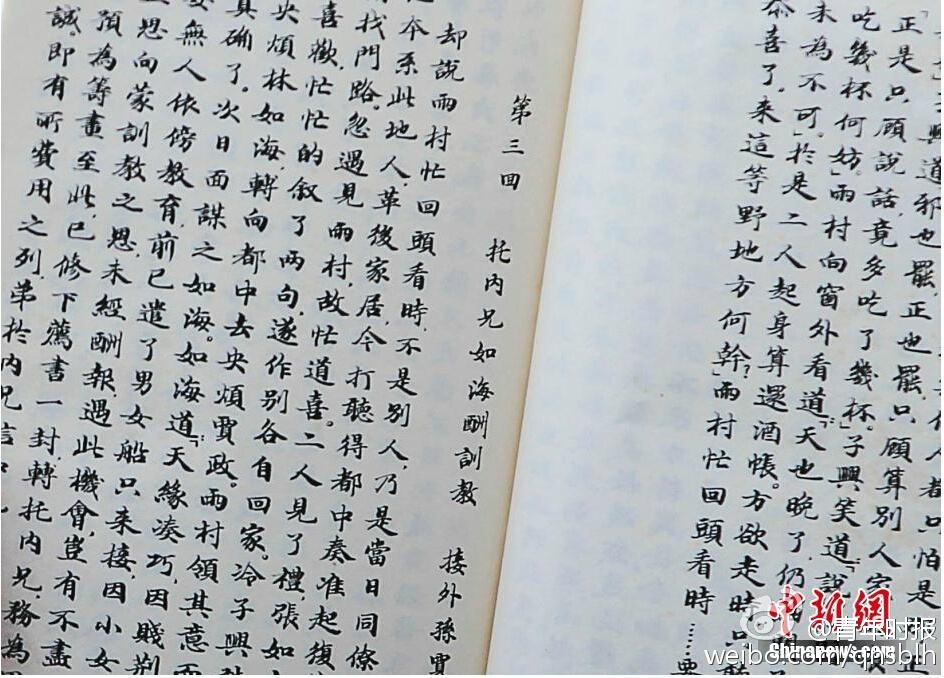 人都只怕是
興道邪也罷,正也罷,只顧算別人家
正是只顧說話,竟多吃了幾杯。」子興笑道「說
吃幾杯何妨。」雨村向窗外看道「天也晚了,仍
未為不可。」於是二人起身算還酒帳。方欲走時
恭喜了,来這等野地方何幹?」雨村忙回頭看時……要
第三回 托内兄如海酬訓教 接外孫賈
却說雨村忙回頭看時,不是別人,乃是當日同僚
本系此地人,革後家居,今打聽得都中奏准起復
找門路,忽遇見雨村,故忙道喜。二人見了禮,張如
喜歡,忙忙的叙了兩句,遂作別各自回家。冷子興
央煩林如海,轉向都中去央煩賈政。雨村領其意而
真确了。次日面謀之如海。如海道「天緣凑巧,因賤荆
無人依傍教育,前已遣了男女船只来接,因小女
思向蒙訓教之恩,未經酬報,遇此機會,豈有不盡
預為籌畫至此,已修下薦書一封,轉托内兄務為
誠,即有所費用之列,弟於内兄信
中新網
Chinanews.com
@青年时报
weibo.com/qnsbih